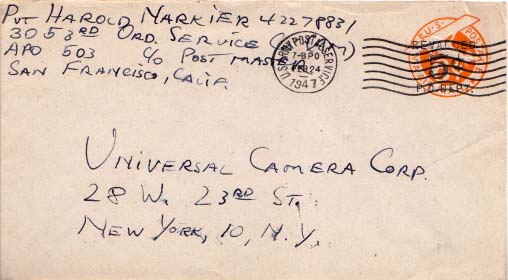 Pvt Harold Markier 42278831
3053rd Ord. Service
APO 503 c/o Post Master
San Francisco, Calif.
U.S. ARMY POSTAL SERVICE
APO
24
1947
U.S. POSTAGE
REVALUED
5¢
P.O. DEPT.
Universal Camera Corp.
28 W. 23rd St.
New York, 10, N.Y.